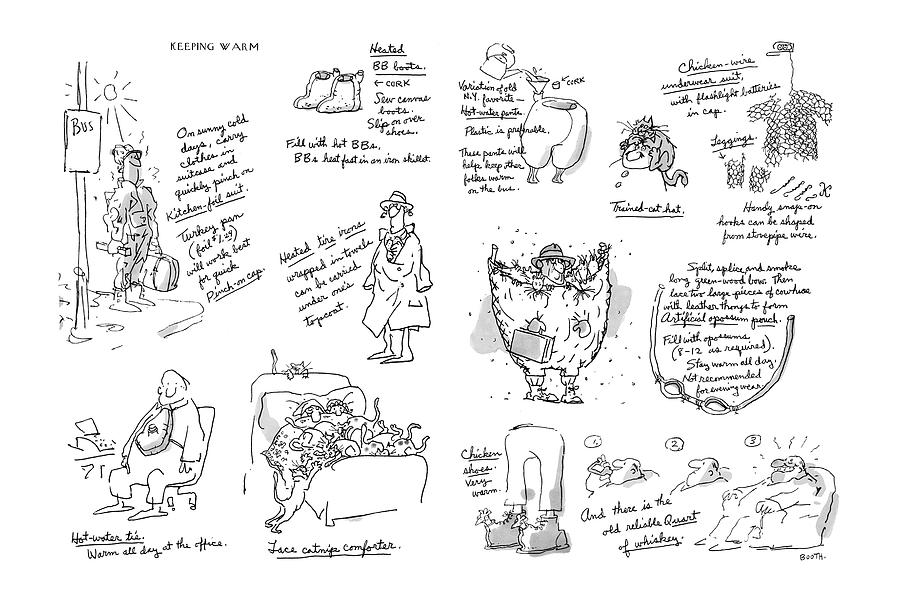 KEEPING WARM
BUS
On sunny cold
days, carry
clothes in
suitcase and
quickly pinch on
Kitchen-foil suit.
Turkey pan
(foil $1.29)
will work best
for quick
Pinch-on cap.
Heated
BB boots.
← CORK
Sew canvas
boots.
Slip on over
shoes.
Fill with hot BBs.
BBs heat fast in an iron skillet.
Heated tire irons
wrapped in towels
can be carried
under one's
topcoat.
Hot-water tie.
Warm all day at the office.
Lace catnip comforter.
Variation of old
N.Y. favorite—
Hot-water pants.
Plastic is preferable.
These pants will
help keep other
folks warm
on the bus.
CORK
Trained-cat hat.
Chicken-wire
underwear suit,
with flashlight batteries
in cap.
Leggings.
Handy snap-on
hooks can be shaped
from stovepipe wire.
Split, splice and smoke
long green-wood bow. Then
lace two large pieces of cowhide
with leather thongs to form
Artificial opossum pouch.
Fill with opossums
(8-12 as required).
Stay warm all day.
Not recommended
for evening wear.
Chicken
shoes.
Very
warm.
1
2
3
And there is the
old reliable Quart
of whiskey.
BOOTH.